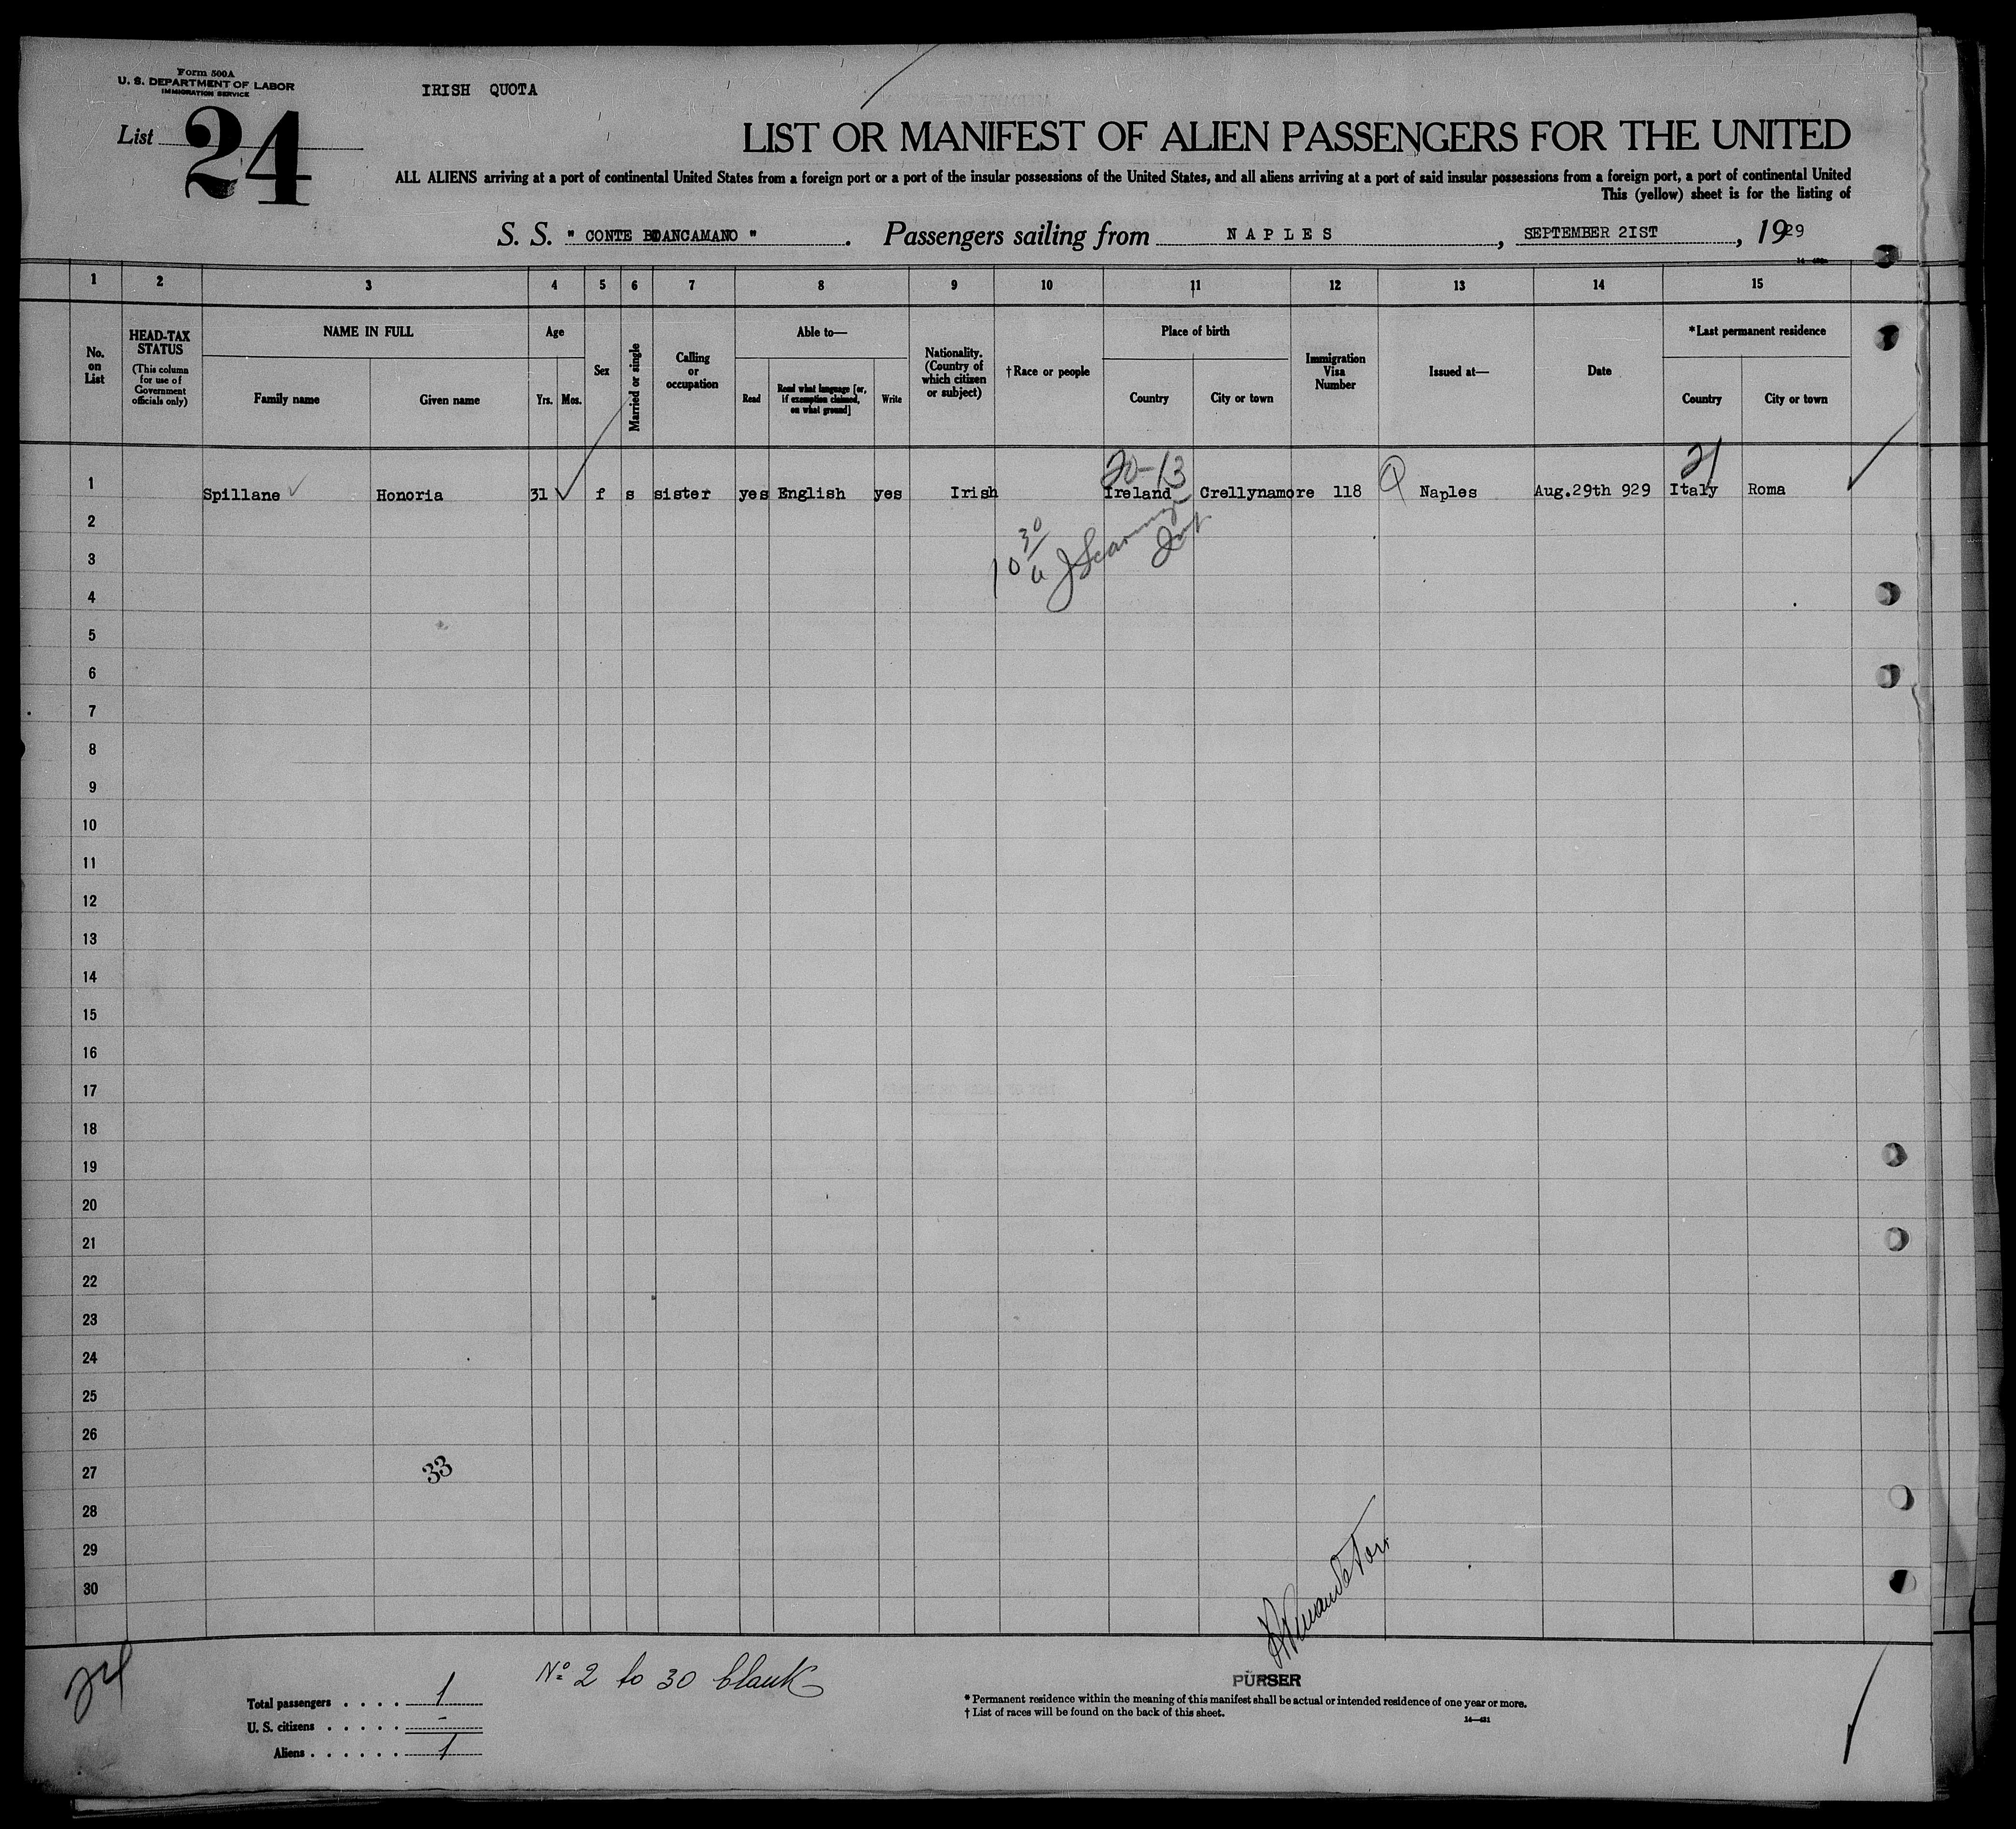 Form 500A
U. S. DEPARTMENT OF LABOR
IMMIGRATION SERVICE
IRISH QUOTA
List 24
LIST OR MANIFEST OF ALIEN PASSENGERS FOR THE UNITED
ALL ALIENS arriving at a port of continental United States from a foreign port or a port of the insular possessions of the United States, and all aliens arriving at a port of said insular possessions from a foreign port, a port of continental United
This (yellow) sheet is for the listing of
S. S. " CONTE BOANCAMANO ". Passengers sailing from NAPLES, SEPTEMBER 2IST, 1929
1 2 3 4 5 6 7 8 9 10 11 12 13 14 15
No. on List
HEAD-TAX STATUS
(This column for use of Government officials only)
NAME IN FULL
Family name Given name
Age
Yrs. Mos.
Sex
Married or single
Calling or occupation
Able to—
Read
Read what language [or, if exemption claimed, on what ground]
Write
Nationality. (Country of which citizen or subject)
† Race or people
Place of birth
Country City or town
Immigration Visa Number
Issued at—
Date
*Last permanent residence
Country City or town
20-13 21
1 Spillane Honoria 31 f s sister yes English yes Irish Ireland Crellynamore 118 Naples Aug.29th 929 Italy Roma
2
10 30
3
4
5
6
7
8
9
10
11
12
13
14
15
16
17
18
19
20
21
22
23
24
25
26
27 33
28
29
30
24
Nº 2 to 30 blank
PURSER
Total passengers . . . . 1
U. S. citizens . . . . . -
Aliens . . . . . . 1
* Permanent residence within the meaning of this manifest shall be actual or intended residence of one year or more.
† List of races will be found on the back of this sheet.
14—421